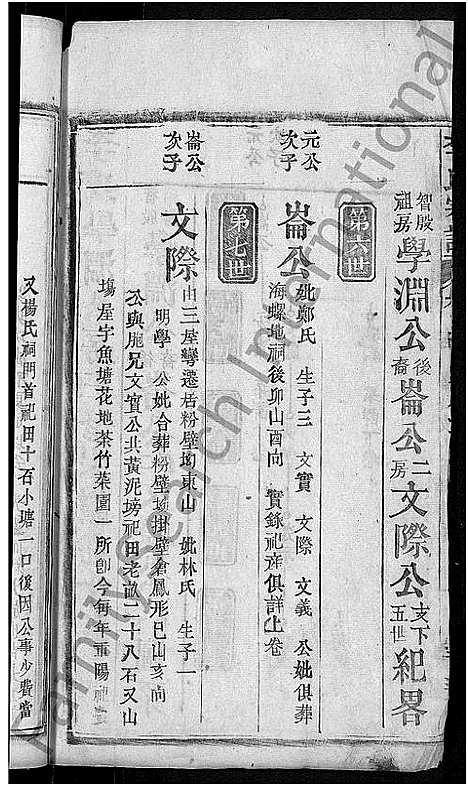 智殷祖房學淵公後裔崙公二房文際公支下五世紀畧
第六世
元公次子
崙公
妣鄭氏 生子三 文實 文際 文義 公妣俱葬
海螺地祠後卯山酉向 實錄祀產俱詳上卷
第七世
崙公次子
文際
由三屋灣遷居粉壁坳東山 妣林氏 生子一
明學 公妣合葬粉壁坳掛壁倉鳳形巳山亥向
公與胞兄文實公北黃泥塝祀田老畝二十八石又山
塲屋宇魚塘花地茶竹菜園一所卽今每年重陽
又楊氏祠門首祀田十石小塘一口後因公事少費當
FamilySearch International